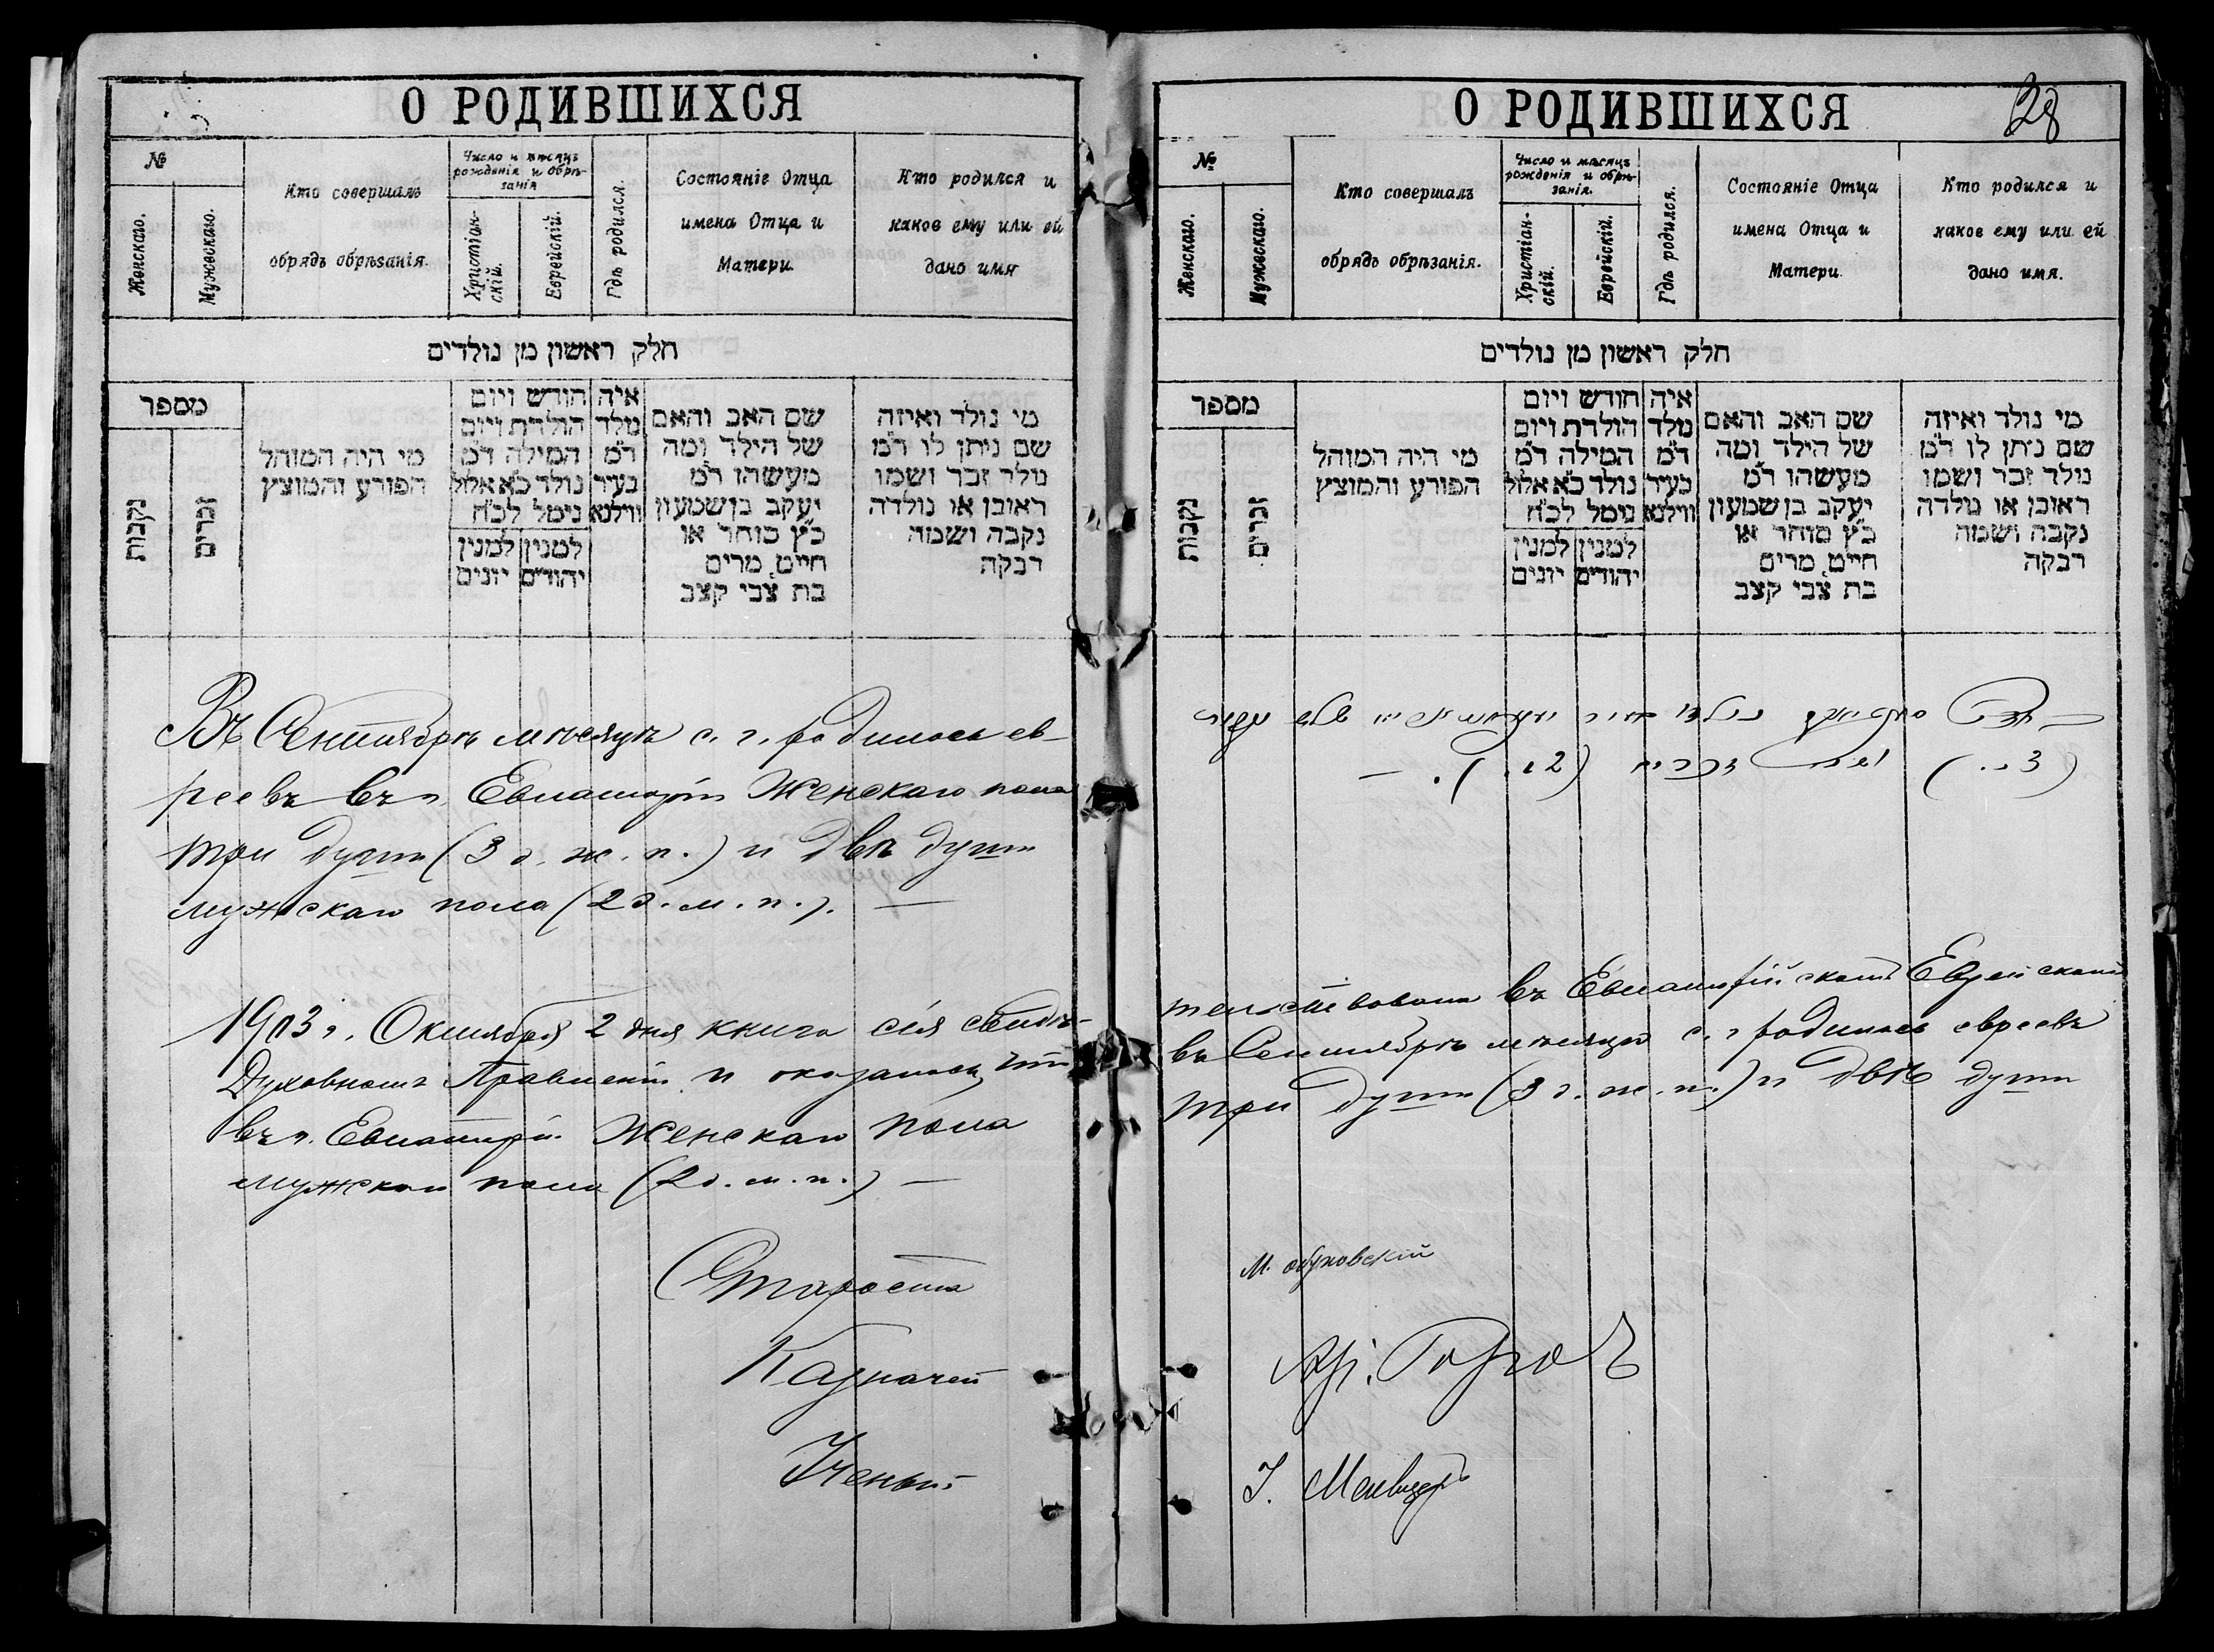 О РОДИВШИХСЯ
№
Женскаго.
Мужескаго.
Кто совершалъ
обрядъ обрѣзанія.
Число и мѣсяцъ
рожденія и обрѣ-
занія
Христіан-
скій.
Еврейскій.
Гдѣ родился.
Состояніе Отца
имена Отца и
Матери
Кто родился и
какое ему или ей
дано имя
חלק ראשון מן נולדים
מספר
נקבות
זכרים
מי היה המוהל
הפורע והמוצץ
חודש ויום
הולדת ויום
המילה ד״מ
נולד כ״א אלול
נימל לכ״ח
למנין למנין
יהודים יונים
איה
נולד
ד״מ
בעיר
ווילנא
שם האב והאם
של הילד ומה
מעשהו ד״מ
יעקב בן שמעון
כ״ץ סוחר או
חייט, מרים
בת צבי קצב
מי נולד ואיזה
שם ניתן לו ד״מ
נולד זכר ושמו
ראובן או נולדה
נקבה ושמה
רבקה
Въ Сентябрѣ мѣсяцѣ с. г. родилось ев-
реевъ въ г. Евпаторіи Женскаго пола
три души (3 д. ж. п.) и двѣ души
мужскаго пола (2 д. м. п.). —
1903 г. Октября 2 дня книга сія свидѣ-
Духовномъ Правленіи и оказалось, что
въ г. Евпаторіи Женскаго пола
мужскаго пола (2 д. м. п.) —
Староста
Казначей
Ученый
О РОДИВШИХСЯ
28
№
Женскаго.
Мужескаго.
Кто совершалъ
обрядъ обрѣзанія.
Число и мѣсяцъ
рожденія и обрѣ-
занія.
Христіан-
скій.
Еврейскій.
Гдѣ родился.
Состояніе Отца
имена Отца и
Матери
Кто родился и
какое ему или ей
дано имя.
חלק ראשון מן נולדים
מספר
נקבות
זכרים
מי היה המוהל
הפורע והמוצץ
חודש ויום
הולדת ויום
המילה ד״מ
נולד כ״א אלול
נימל לכ״ח
למנין למנין
יהודים יונים
איה
נולד
ד״מ
בעיר
ווילנא
שם האב והאם
של הילד ומה
מעשהו ד״מ
יעקב בן שמעון
כ״ץ סוחר או
חייט, מרים
בת צבי קצב
מי נולד ואיזה
שם ניתן לו ד״מ
נולד זכר ושמו
ראובן או נולדה
נקבה ושמה
רבקה
тельствована въ Евпаторійскомъ Еврейскомъ
въ Сентябрѣ мѣсяцѣ с. г. родилось евреевъ
три души (3 д. ж. п.) и двѣ души